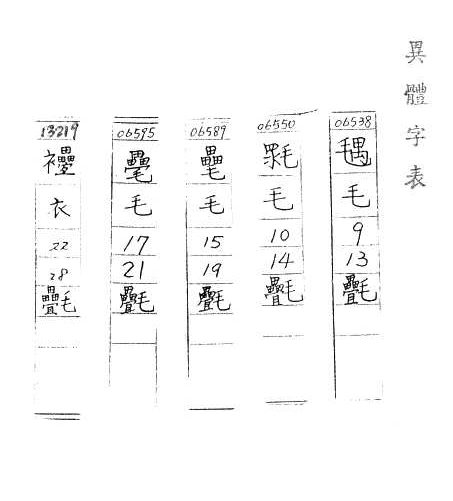 異體字表
06538
毛
9
13
氎
06550
毛
10
14
氎
06589
毛
15
19
氎
06595
毛
17
21
氎
13219
衣
22
28
氎